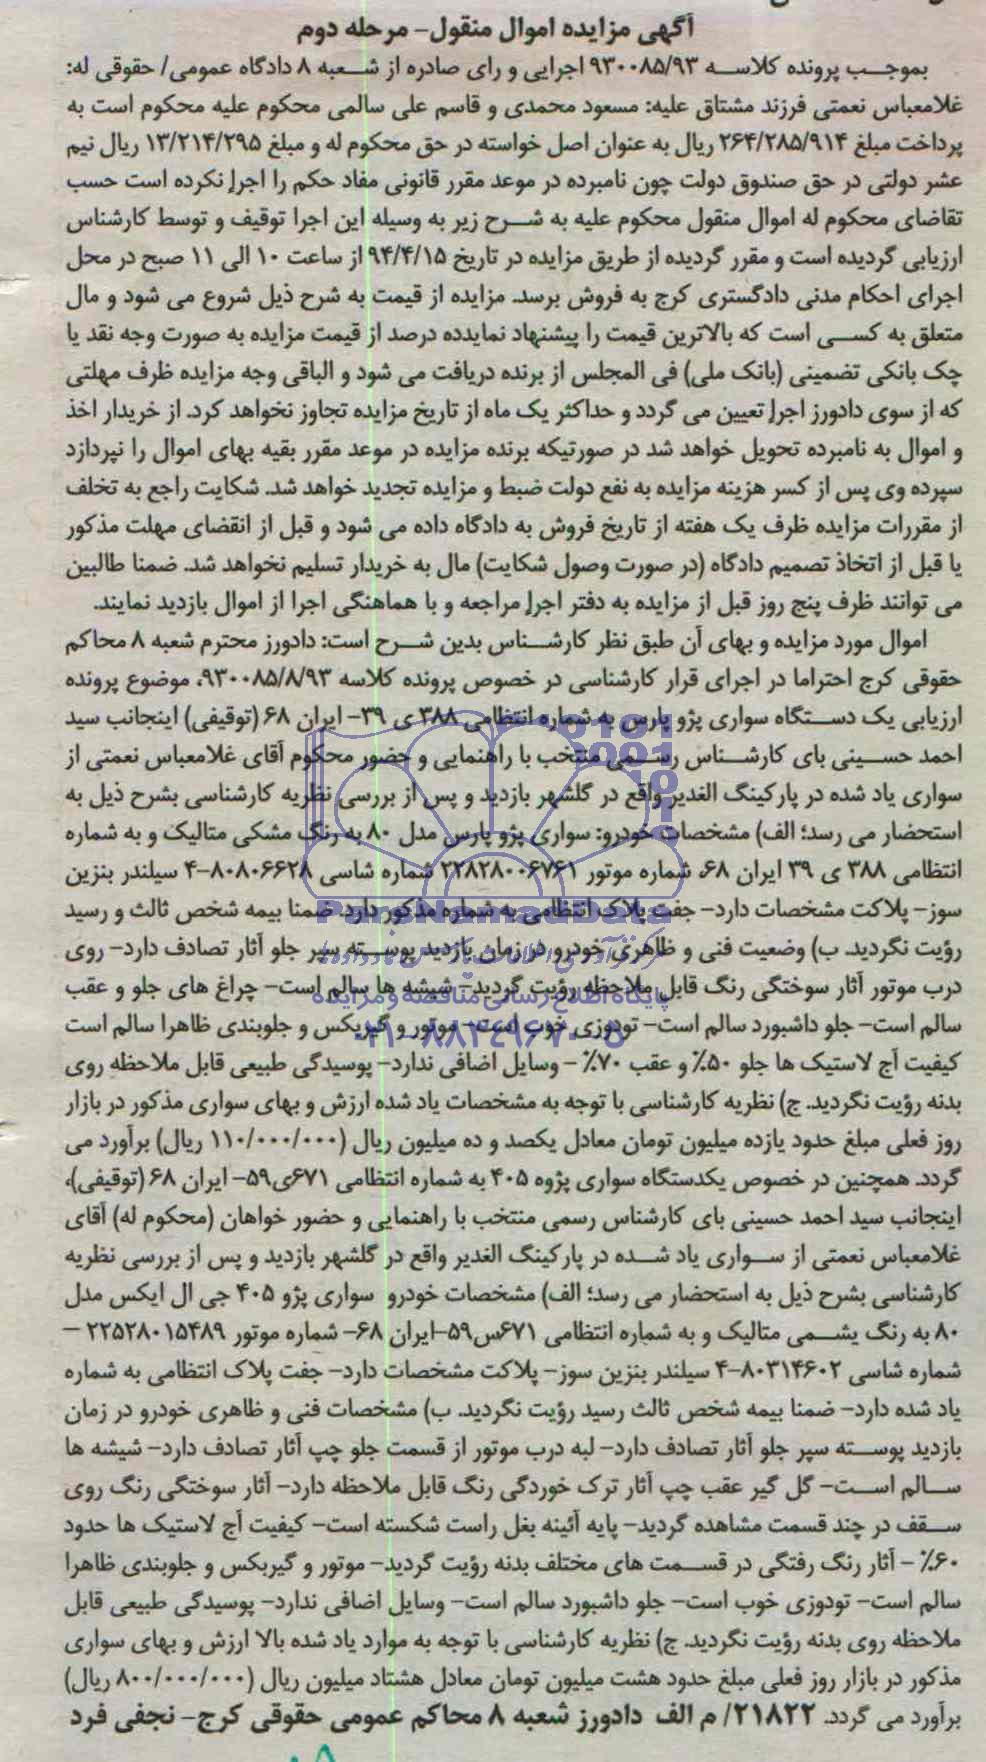 آگهی مزایده اموال منقول- مرحله دوم
بموجب پرونده کلاسه ۹۳۰۰۸۵/۹۳ اجرایی و رای صادره از شعبه ۸ دادگاه عمومی/ حقوقی له:
غلامعباس نعمتی فرزند مشتاق علیه: مسعود محمدی و قاسم علی سالمی محکوم علیه محکوم است به
پرداخت مبلغ ۲۶۴/۲۸۵/۹۱۴ ریال به عنوان اصل خواسته در حق محکوم له و مبلغ ۱۳/۲۱۴/۲۹۵ ریال نیم
عشر دولتی در حق صندوق دولت چون نامبرده در موعد مقرر قانونی مفاد حکم را اجرا نکرده است حسب
تقاضای محکوم له اموال منقول محکوم علیه به شرح زیر به وسیله این اجرا توقیف و توسط کارشناس
ارزیابی گردیده است و مقرر گردیده از طریق مزایده در تاریخ ۹۴/۴/۱۵ از ساعت ۱۰ الی ۱۱ صبح در محل
اجرای احکام مدنی دادگستری کرج به فروش برسد. مزایده از قیمت به شرح ذیل شروع می شود و مال
متعلق به کسی است که بالاترین قیمت را پیشنهاد نمایدده درصد از قیمت مزایده به صورت وجه نقد یا
چک بانکی تضمینی (بانک ملی) فی المجلس از برنده دریافت می شود و الباقی وجه مزایده ظرف مهلتی
که از سوی دادورز اجرا تعیین می گردد و حداکثر یک ماه از تاریخ مزایده تجاوز نخواهد کرد. از خریدار اخذ
و اموال به نامبرده تحویل خواهد شد در صورتیکه برنده مزایده در موعد مقرر بقیه بهای اموال را نپردازد
سپرده وی پس از کسر هزینه مزایده به نفع دولت ضبط و مزایده تجدید خواهد شد. شکایت راجع به تخلف
از مقررات مزایده ظرف یک هفته از تاریخ فروش به دادگاه داده می شود و قبل از انقضای مهلت مذکور
یا قبل از اتخاذ تصمیم دادگاه (در صورت وصول شکایت) مال به خریدار تسلیم نخواهد شد. ضمنا طالبین
می توانند ظرف پنج روز قبل از مزایده به دفتر اجرا مراجعه و با هماهنگی اجرا از اموال بازدید نمایند.
اموال مورد مزایده و بهای آن طبق نظر کارشناس بدین شرح است: دادورز محترم شعبه ۸ محاکم
حقوقی کرج احتراما در اجرای قرار کارشناسی در خصوص پرونده کلاسه ۹۳۰۰۸۵/۸/۹۳، موضوع پرونده
ارزیابی یک دستگاه سواری پژو پارس به شماره انتظامی ۳۸۸ ی ۳۹- ایران ۶۸ (توقیفی) اینجانب سید
احمد حسینی بای کارشناس رسمی منتخب با راهنمایی و حضور محکوم آقای غلامعباس نعمتی از
سواری یاد شده در پارکینگ الغدیر واقع در گلشهر بازدید و پس از بررسی نظریه کارشناسی بشرح ذیل به
استحضار می رسد؛ الف) مشخصات خودرو: سواری پژو پارس مدل ۸۰ به رنگ مشکی متالیک و به شماره
انتظامی ۳۸۸ ی ۳۹ ایران ۶۸، شماره موتور ۲۲۸۲۸۰۰۶۷۶۱ شماره شاسی ۸۰۸۰۶۶۲۸-۴ سیلندر بنزین
سوز- پلاکت مشخصات دارد- جفت پلاک انتظامی به شماره مذکور دارد. ضمنا بیمه شخص ثالث و رسید
رؤیت نگردید. ب) وضعیت فنی و ظاهری خودرو در زمان بازدید پوسته سپر جلو آثار تصادف دارد- روی
درب موتور آثار سوختگی رنگ قابل ملاحظه رؤیت گردید- شیشه ها سالم است- چراغ های جلو و عقب
سالم است- جلو داشبورد سالم است- تودوزی خوب است- موتور و گیربکس و جلوبندی ظاهرا سالم است
کیفیت آج لاستیک ها جلو ۵۰٪ و عقب ۷۰٪ - وسایل اضافی ندارد- پوسیدگی طبیعی قابل ملاحظه روی
بدنه رؤیت نگردید. ج) نظریه کارشناسی با توجه به مشخصات یاد شده ارزش و بهای سواری مذکور در بازار
روز فعلی مبلغ حدود یازده میلیون تومان معادل یکصد و ده میلیون ریال (۱۱۰/۰۰۰/۰۰۰ ریال) برآورد می
گردد. همچنین در خصوص یکدستگاه سواری پژوه ۴۰۵ به شماره انتظامی ۶۷۱ی۵۹- ایران ۶۸ (توقیفی)،
اینجانب سید احمد حسینی بای کارشناس رسمی منتخب با راهنمایی و حضور خواهان (محکوم له) آقای
غلامعباس نعمتی از سواری یاد شده در پارکینگ الغدیر واقع در گلشهر بازدید و پس از بررسی نظریه
کارشناسی بشرح ذیل به استحضار می رسد؛ الف) مشخصات خودرو سواری پژو ۴۰۵ جی ال ایکس مدل
۸۰ به رنگ یشمی متالیک و به شماره انتظامی ۶۷۱س۵۹-ایران ۶۸- شماره موتور ۲۲۵۲۸۰۱۵۴۸۹ -
شماره شاسی ۸۰۳۱۴۶۰۲-۴ سیلندر بنزین سوز- پلاکت مشخصات دارد- جفت پلاک انتظامی به شماره
یاد شده دارد- ضمنا بیمه شخص ثالث رسید رؤیت نگردید. ب) مشخصات فنی و ظاهری خودرو در زمان
بازدید پوسته سپر جلو آثار تصادف دارد- لبه درب موتور از قسمت جلو چپ آثار تصادف دارد- شیشه ها
سالم است- گل گیر عقب چپ آثار ترک خوردگی رنگ قابل ملاحظه دارد- آثار سوختگی رنگ روی
سقف در چند قسمت مشاهده گردید- پایه آئینه بغل راست شکسته است- کیفیت آج لاستیک ها حدود
۶۰٪ - آثار رنگ رفتگی در قسمت های مختلف بدنه رؤیت گردید- موتور و گیربکس و جلوبندی ظاهرا
سالم است- تودوزی خوب است- جلو داشبورد سالم است- وسایل اضافی ندارد- پوسیدگی طبیعی قابل
ملاحظه روی بدنه رؤیت نگردید. ج) نظریه کارشناسی با توجه به موارد یاد شده بالا ارزش و بهای سواری
مذکور در بازار روز فعلی مبلغ حدود هشت میلیون تومان معادل هشتاد میلیون ریال (۸۰۰/۰۰۰/۰۰۰ ریال)
برآورد می گردد. ۲۱۸۲۲/ م الف دادورز شعبه ۸ محاکم عمومی حقوقی کرج- نجفی فرد
ParsNamadData
پایگاه اطلاع رسانی مناقصه و مزایده
۰۲۱-۸۸۳۴۹۶۷۰-۵